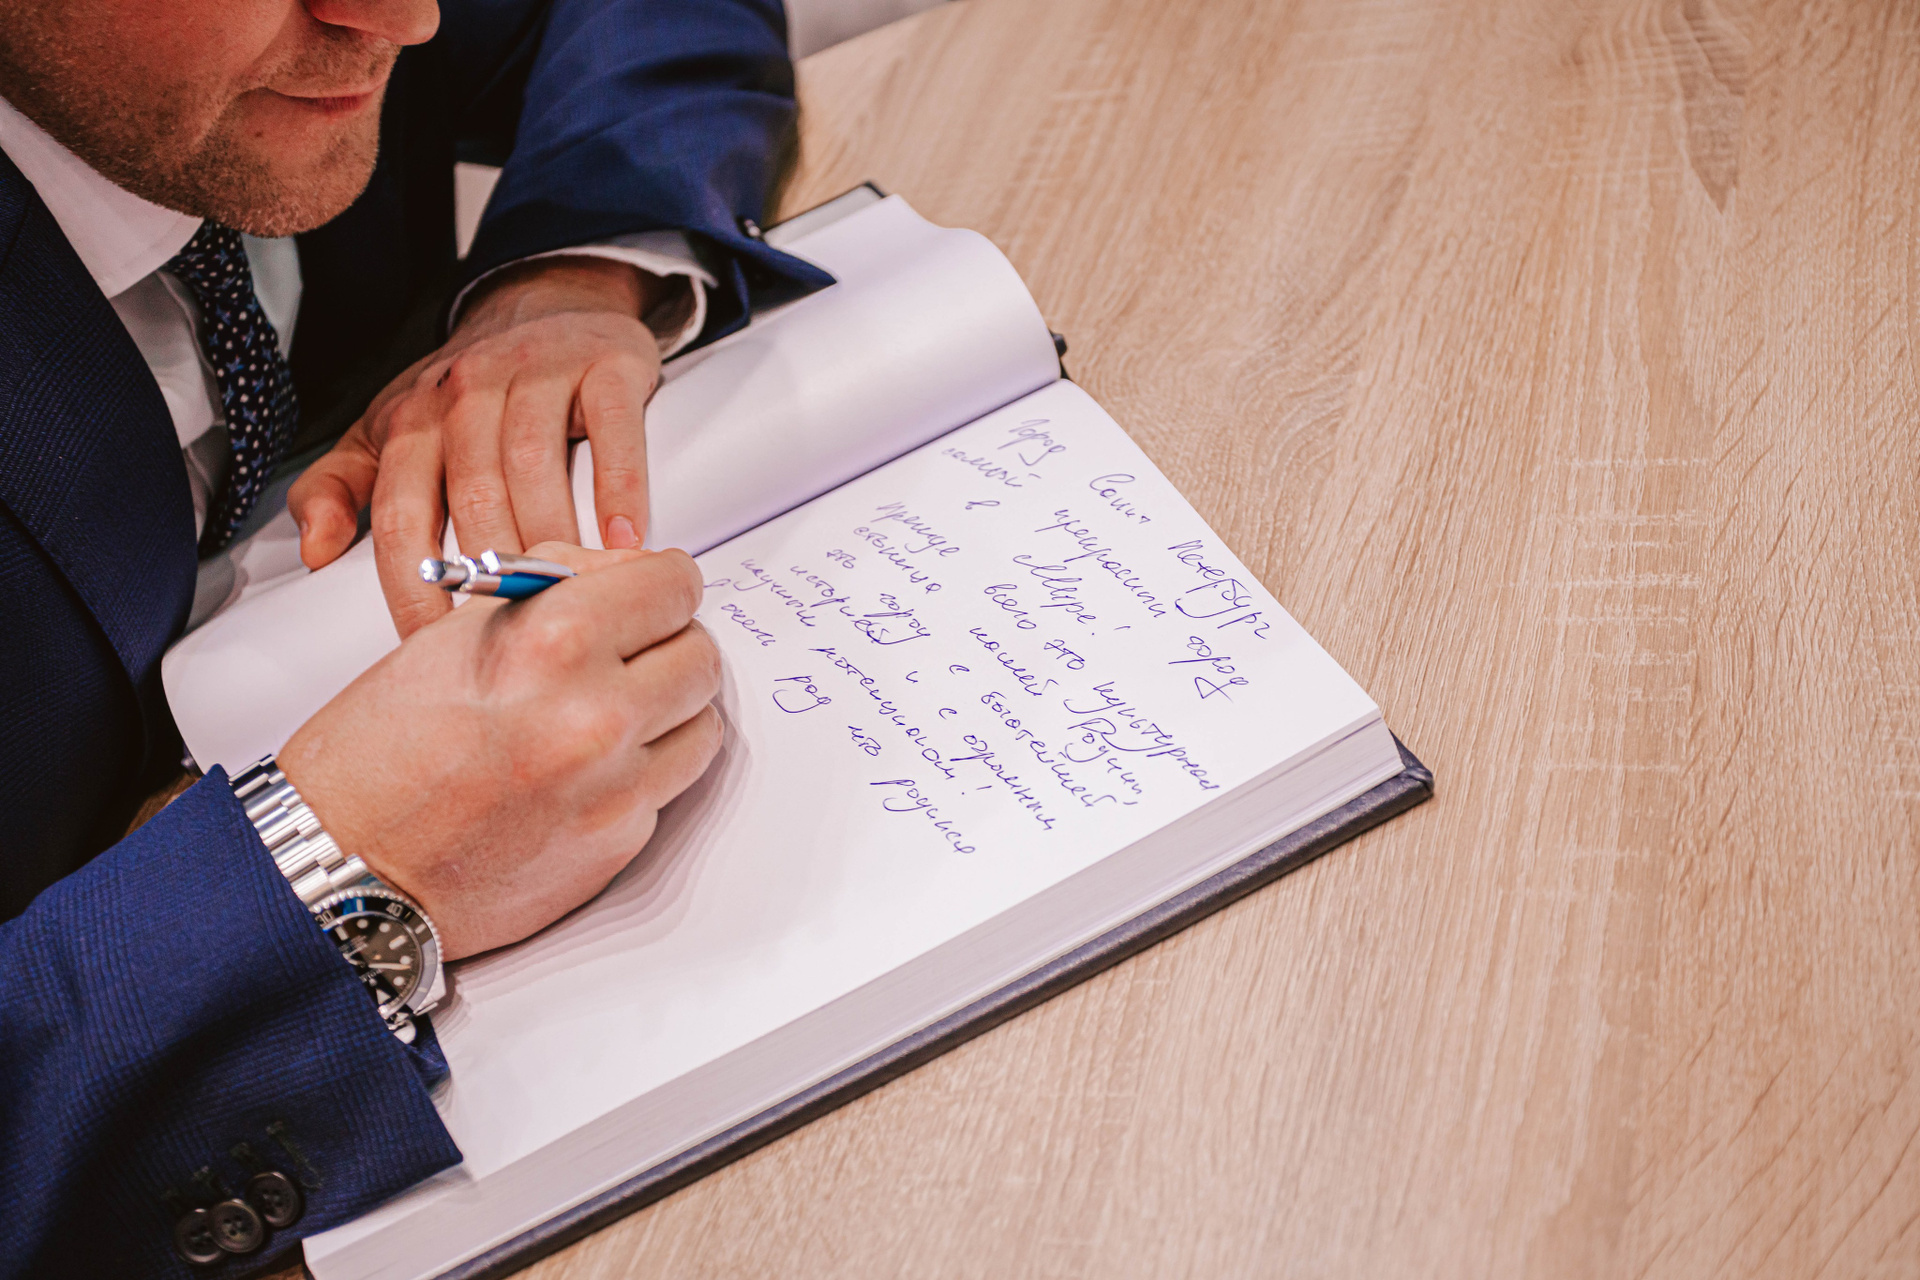 Город Санкт Петербург
самый прекрасный город
в севере!
Прежде всего это культурная
столица нашей Родины,
это город с богатейшей
историей и с огромным
научным потенциалом!
очень рад что родился